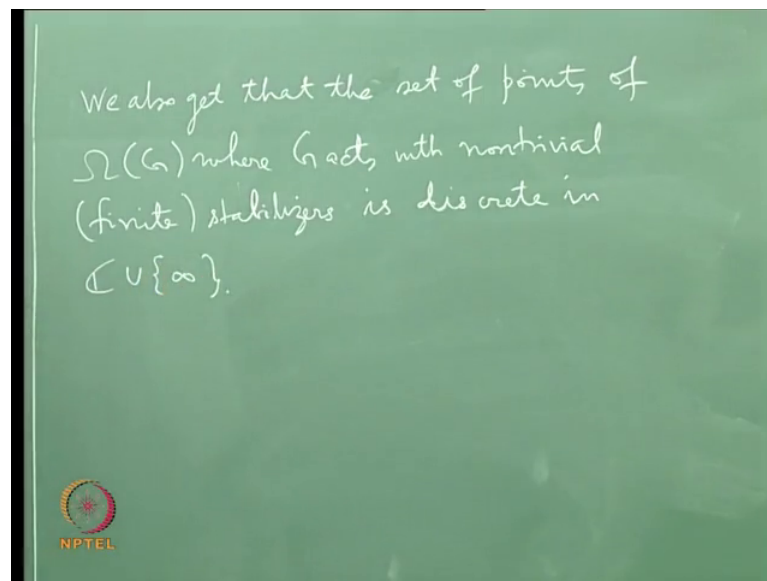 We also get that the set of points of
Ω(G) where G acts with nontrivial
(finite) stabilizers is discrete in
ℂ ∪ {∞}.
NPTEL